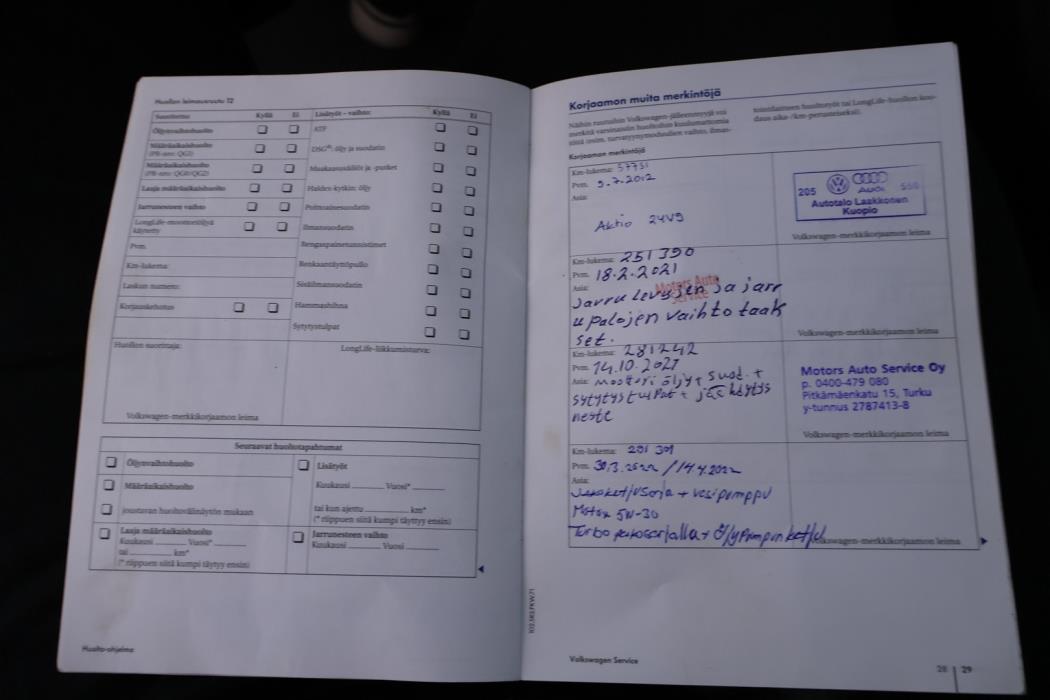 Huollon leimausruutu 12
Suoritettu: Kyllä Ei
Öljynvaihtohuolto
Määräaikaishuolto
(PR-nro: QG1)
Määräaikaishuolto
(PR-nro: QG0/QG2)
Laaja määräaikaishuolto
Jarrunesteen vaihto
LongLife-moottoriöljyä
käytetty
Pvm.
Km-lukema:
Laskun numero:
Korjauskehotus
Lisätyöt – vaihto: Kyllä Ei
ATF
DSG®: öljy ja suodatin
Muokausosäiliö ja -putket
Haldex-kytkin: öljy
Polttoainesuodatin
Ilmansuodatin
Rengaspainetunnistimet
Renkaantäyttöpullo
Sisäilmansuodatin
Hammashihna
Sytytystulpat
Huollon suorittaja:
Volkswagen-merkkikorjaamon leima
LongLife-liikkumisturva:
Seuraavat huoltotapahtumat
Öljynvaihtohuolto
Määräaikaishuolto
joustavan huoltovälinäytön mukaan
Laaja määräaikaishuolto
Kuukausi Vuosi*
tai km*
(* riippuen siitä kumpi täyttyy ensin)
Lisätyöt
Kuukausi Vuosi*
tai kun ajettu km*
(* riippuen siitä kumpi täyttyy ensin)
Jarrunesteen vaihto
Kuukausi Vuosi
Huolto-ohjelma
Korjaamon muita merkintöjä
Näihin ruutuihin Volkswagen-jälleenmyyjä voi
merkitä varsinaisiin huoltoihin kuulumattomia
töitä (esim. turvatyynymoduulien vaihto, ilman-
toimitaitteen huoltotyöt tai LongLife-huollon kou-
daus aika-/km-perusteiseksi).
Korjaamon merkintöjä
Km-lukema: 57751
Pvm. 5.7.2012
Asia:
Aktio 24V9
205 AUDI 550
Autotalo Laakkonen
Kuopio
Volkswagen-merkkikorjaamon leima
Km-lukema: 251390
Pvm. 18.2.2021
Asia:
Jarrulevyjen ja jarr
upalojen vaihto taak
set.
Motors Auto
Service
Volkswagen-merkkikorjaamon leima
Km-lukema: 281242
Pvm. 14.10.2021
Asia: moottori öljy + suod. +
sytytystulpat + jäähdytys
neste
Motors Auto Service Oy
p. 0400-479 080
Pitkämäenkatu 15, Turku
y-tunnus 2787413-8
Volkswagen-merkkikorjaamon leima
Km-lukema: 291 301
Pvm. 30.3.2022 / 14.4.2022
Asia:
Jakoketjusarja + vesipumppu
Motox 5W-30
Turbo + Öljypumpun ketju
Volkswagen-merkkikorjaamon leima
102.5R3.PKW.71
Volkswagen Service
28 29